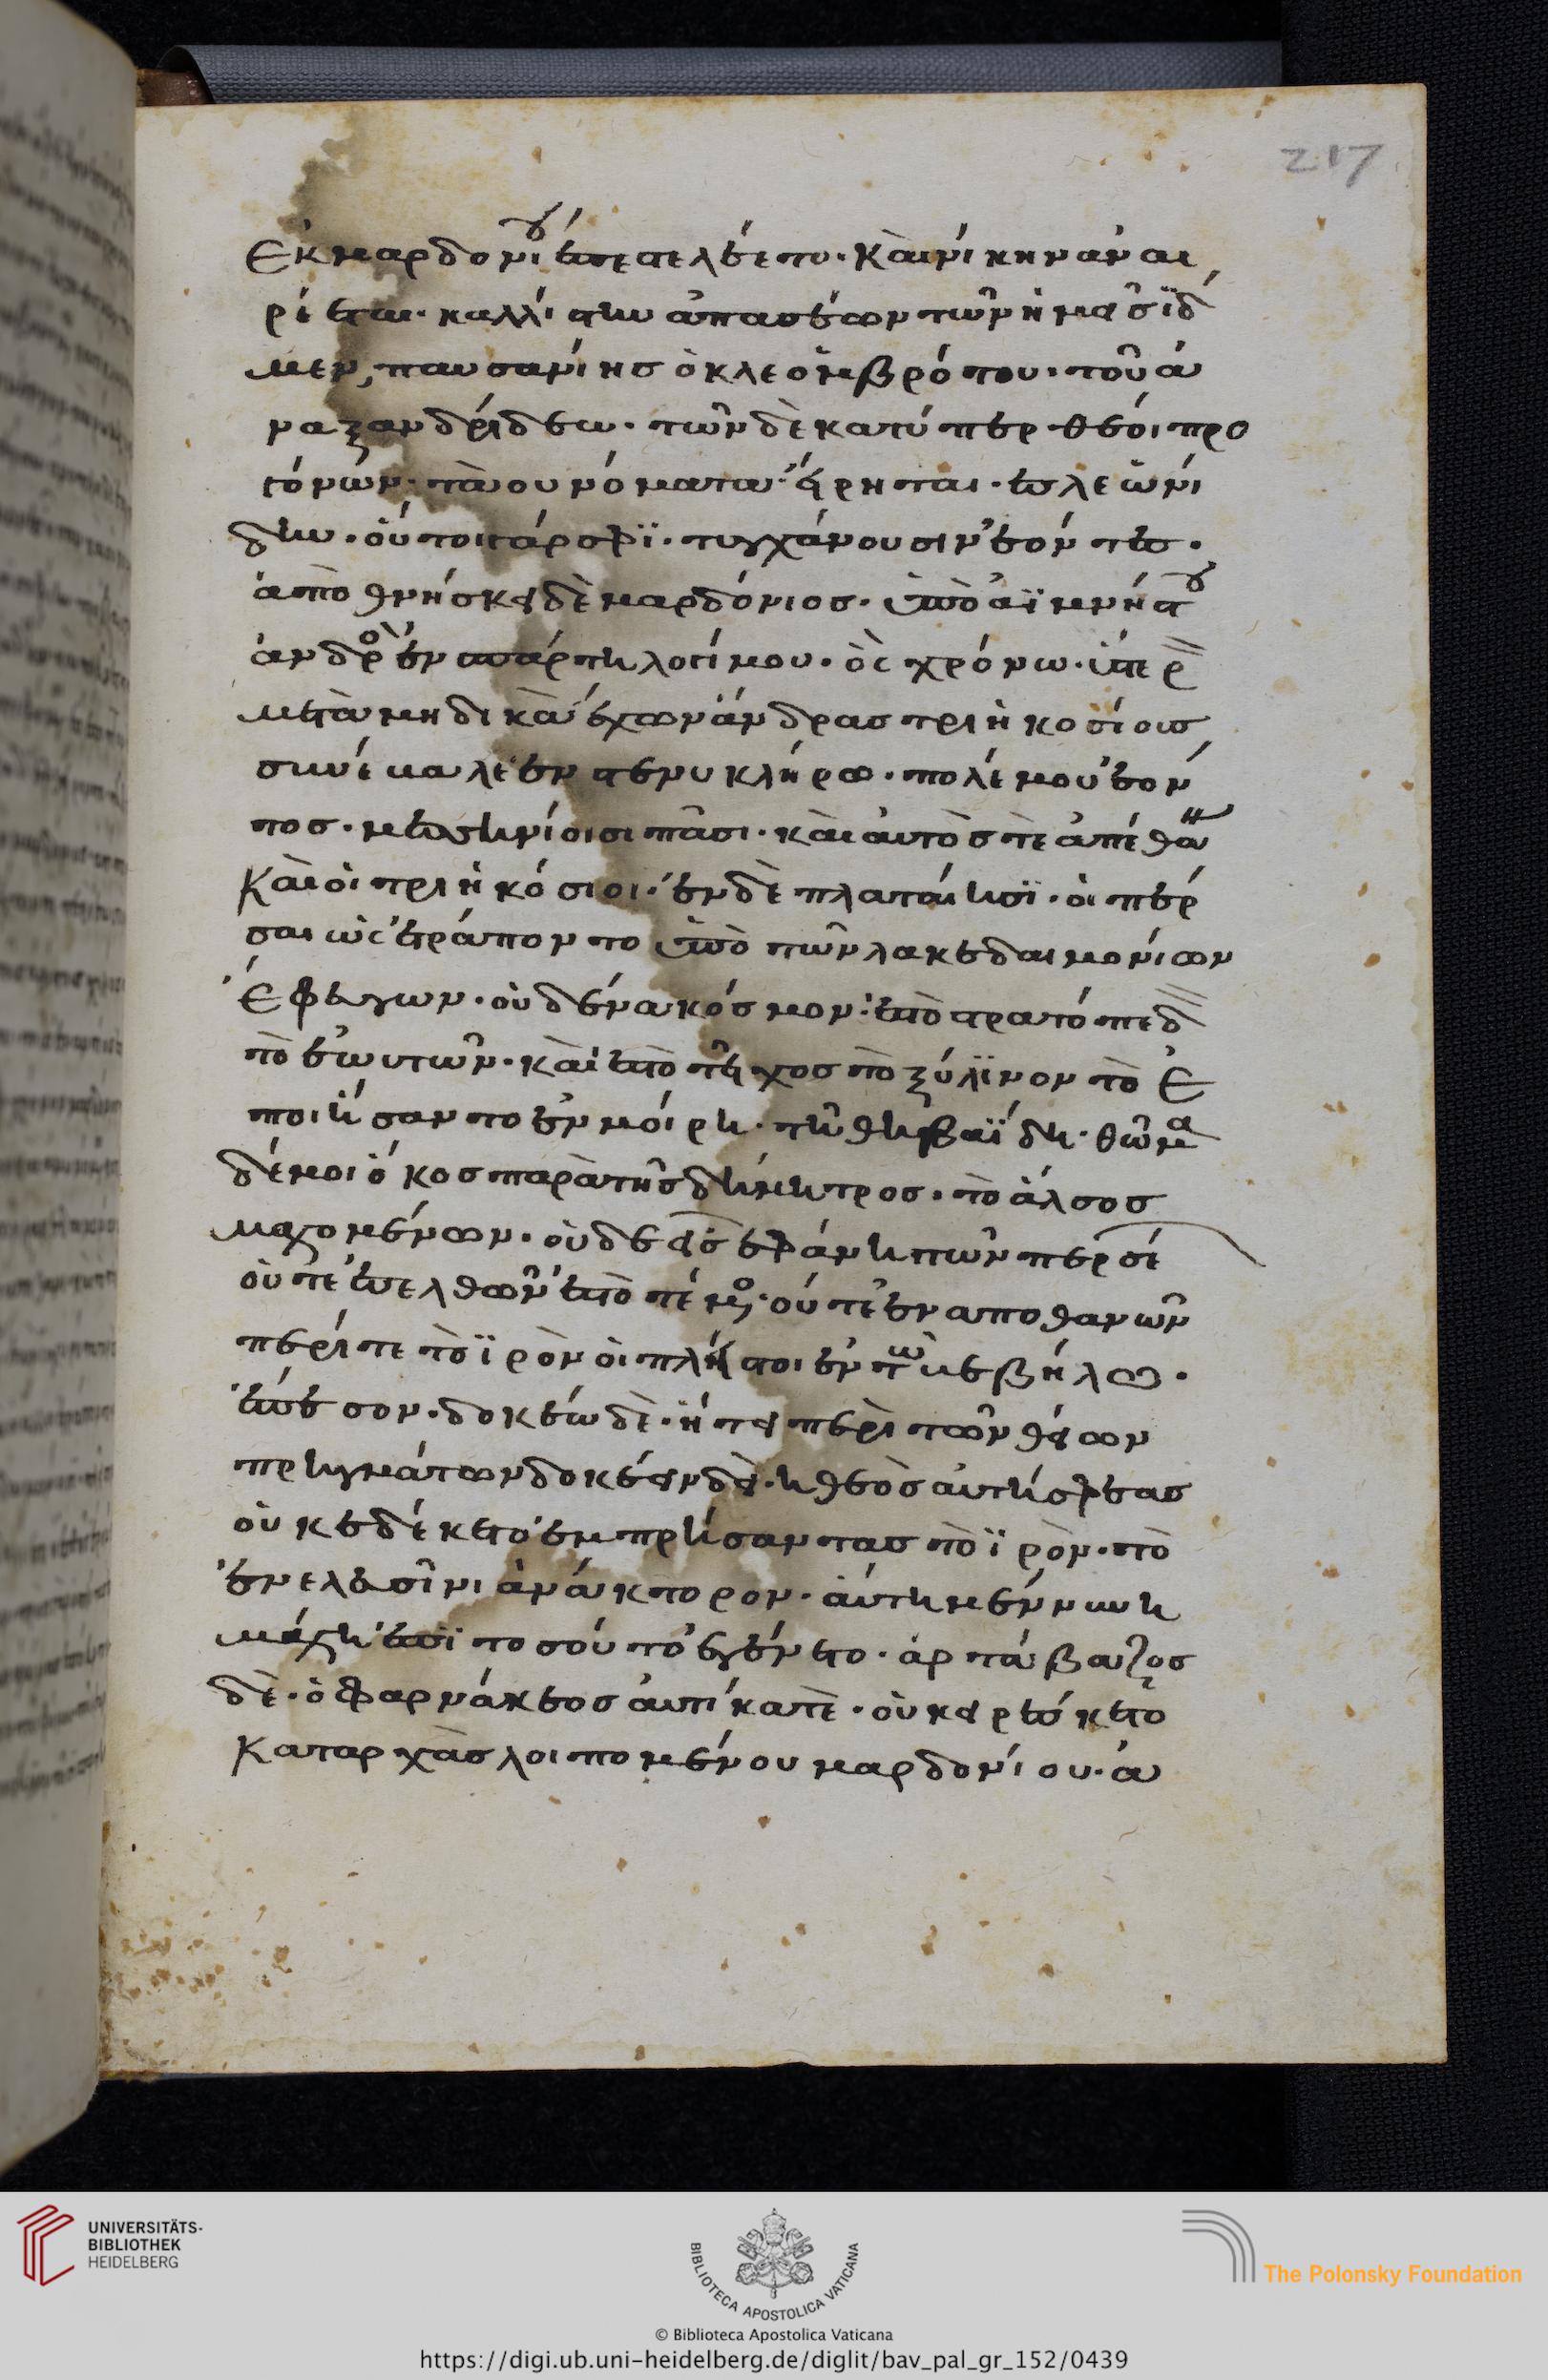 217
Ἐκ μαρδονίου ἐπετελέετο· καὶ νίκην ἀναι
ρέεται· καλλίστην ἁπασέων τῶν ἡμεῖς ἴδ
μεν, παυσανίης ὁ κλεομβρότου· τοῦ ἀ
ναξανδρίδεω· τῶν δὲ κατύπερθέ οἱ προ
γόνων· τὰ οὐνόματα εἴρηται· ἐς λεωνί
δην· ωὑτοι γάρ σφϊ· τυγχάνουσιν ἐόντες·
ἀποθνήσκει δὲ μαρδόνιος· ὑπὸ ἀϊμνήστου
ἀνδρὸς ἐν σπάρτη λογίμου· ὃς χρόνω ὕστερον
μετὰ μηδικὰ ἔχων ἄνδρας τριηκοσίους
συνέβαλε ἐν στενυκλήρω· πολέμου ἐόν
τος· μεσσηνίοισι πᾶσι· καὶ αὐτός τε ἀπέθανε
καὶ οἱ τριηκόσιοι· ἐν δὲ πλαταιῆσϊ· οἱ πέρ
σαι ὡς ἐτράποντο ὑπὸ τῶν λακεδαιμονίων
ἔφευγων· οὐδένα κόσμον· ἐς τὸ στρατόπεδον
τὸ ἑωυτῶν· καὶ ἐς τὸ τεῖχος τὸ ξύλϊνον τὸ ἐ
ποιήσαντο ἐν μοίρη τῆ θηβαΐδη· θῶμα
δέ μοι ὅκος παρὰ τῆς δήμητρος· τὸ ἄλσος
μαχομένων· οὐδὲ εἷς ἐφάνη τῶν περσέων
οὔτε ἐσελθὼν ἐς τὸ τέμενος· οὔτε ἐναποθανών
περί τε τὸ ϊρὸν οἱ πλεῖστοι ἐν τῶ βεβήλω·
ἔπεσον· δοκέω δὲ· εἴ τι περὶ τῶν θείων
πρηγμάτων δοκέειν δεῖ· ἡ θεὸς αὐτή σφεας
οὐκ ἐδέκετο ἐμπρήσαντας τὸ ϊρὸν· τὸ
ἐν ἐλευσῖνι ἀνάκτορον· αὕτη μέν νυν ἡ
μάχη ἐπὶ τοσοῦτο ἐγένετο· ἀρτάβαζος
δὲ· ὁ φαρνάκεος αὐτίκα τὲ· οὐκ ἠρέσκετο
καταρχὰς λοιπομένου μαρδονίου· ἀ
UNIVERSITÄTS-
BIBLIOTHEK
HEIDELBERG
BIBLIOTECA APOSTOLICA VATICANA
The Polonsky Foundation
© Biblioteca Apostolica Vaticana
https://digi.ub.uni-heidelberg.de/diglit/bav_pal_gr_152/0439